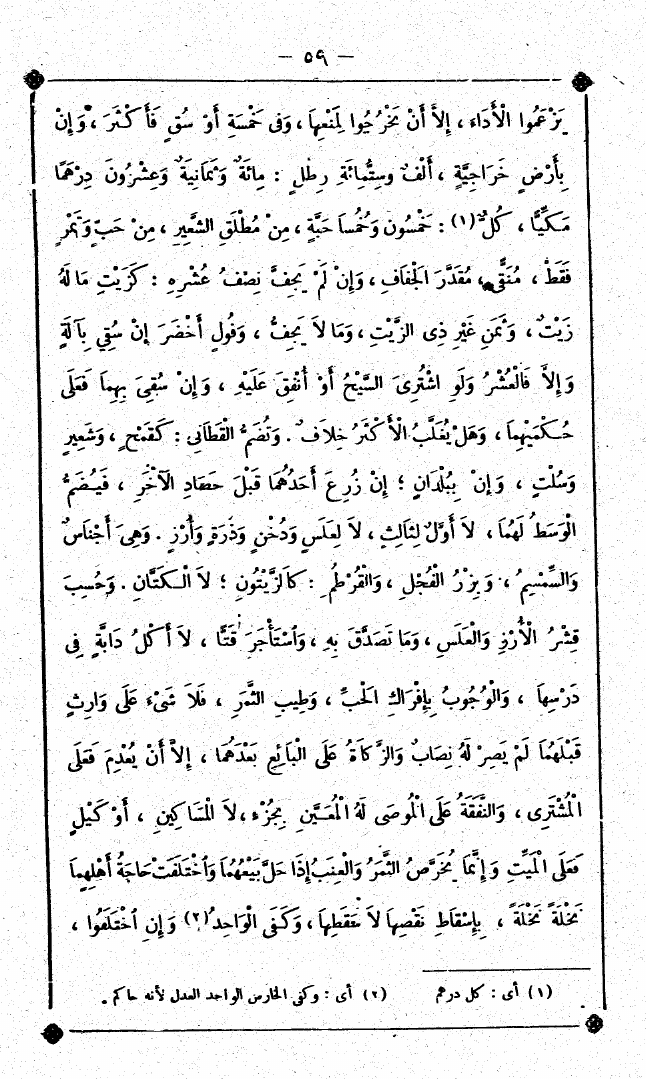 — ٥٩ —
يَزْعُمُوا الْأَدَاءَ ، إِلاَّ أَنْ يَخْرُجُوا لِمَنْعِهَا ، وَفِى خَمْسَةِ أَوْ سُقٍ فَأَكْثَرَ ، وَإِنْ
بِأَرْضٍ خَرَاجِيَّةٍ ، أَلْفٌ وسِتُّمِائَةِ رِطْلٍ : مِائَةٌ وَثَمَانِيَةٌ وَعِشْرُونَ دِرْهَمًا
مَكِّيًّا ، كُلٌّ (١) : خَمْسُون وَخُمُسا حَبَّةٍ ، مِنْ مُطْلَقِ الشَّعِيرِ ، مِنْ حَبٍّ وَتَمْرٍ
فَقَطْ ، مُنَقًّى ، مُقَدَّرَ الْجَفَافِ ، وَإِنْ لَمْ يَجِفَّ نِصْفُ عُشْرِهِ : كَزَيْتِ مَا لَهُ
زَيْتٌ ، وَثَمَنِ غَيْرِ ذِى الزَّيْتِ ، وَمَا لاَ يَجِفُّ ، وَفُولٍ أَخْضَرَ إِنْ سُقِىَ بِآلَةٍ
وَإِلاَّ فَالْعُشْرُ وَلَوِ اشْتُرِىَ السَّيْحُ أَوْ أُنْفِقَ عَلَيْهِ ، وَإِنْ سُقِىَ بِهِمَا فَعَلَى
حُكْمَيْهِمَا ، وَهَلْ يُغَلَّبُ الْأَكْثَرُ خِلاَفٌ . وَتُضَمُّ الْقَطَانِى : كَقَمْحٍ ، وَشَعِيرٍ
وَسُلْتٍ ، وَإِنْ بِبُلْدَانٍ ؛ إِنْ زُرِعَ أَحَدُهُمَا قَبْلَ حَصَادِ الْآخَرِ ، فَيُضَمُّ
الْوَسَطُ لَهُمَا ، لاَ أَوَّلٌ لِثَالِثٍ ، لاَ لِعَلَسٍ وَدُخْنٍ وَذُرَةٍ وَأُرْزٍ . وَهِىَ أَجْنَاسٌ
وَالسِّمْسِمُ ، وَبِزْرُ الْفُجْلِ ، وَالْقُرْطُمِ : كَالزَّيْتُونِ ؛ لاَ الْكَتَّانِ . وَحُسِبَ
قِشْرُ الْأُرْزِ وَالْعَلَسِ ، وَمَا تَصَدَّقَ بِهِ ، وَاسْتَأْجَرَ قَتًّا ، لاَ أَكْلُ دَابَّةٍ فِى
دَرْسِهَا ، وَالْوُجُوبُ بِإِفْرَاكِ الْحَبِّ ، وَطِيبِ الثَّمَرِ ، فَلاَ شَىْءَ عَلَى وَارِثٍ
قَبْلَهُمَا لَمْ يَصِرْ لَهُ نِصَابٌ وَالزَّكَاةُ عَلَى الْبَائِعِ بَعْدَهُمَا ، إِلاَّ أَنْ يُعْدِمَ فَعَلَى
الْمُشْتَرِى ، وَالنَّفَقَةُ عَلَى الْمُوصَى لَهُ الْمُعَيَّنِ بِجُزْءٍ ، لاَ الْمَسَاكِينِ ، أَوْ كَيْلٍ
فَعَلَى الْمَيِّتِ وَإِنَّمَا يُخَرَّصُ الثَّمَرُ وَالْعِنَبُ إِذَا حَلَّ بَيْعُهُمَا وَاخْتَلَفَتْ حَاجَةُ أَهْلِهِمَا
نَخْلَةً نَخْلَةً ، بِإِسْقَاطِ نَقْصِهَا لاَ سَقَطِهَا ، وَكَفَى الْوَاحِدُ (٢) وَإِنِ اخْتَلَفُوا ،
(١) أى : كل درهم (٢) أى : وكفى الخارص الواحد العدل لأنه حاكم .